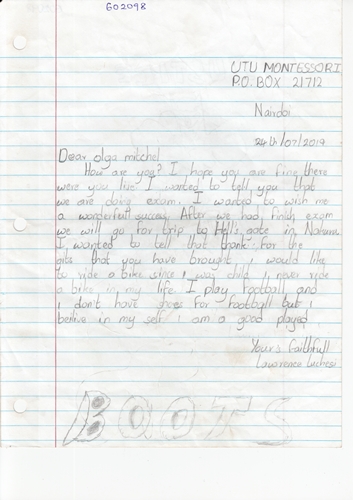 GO2098
UTU MONTESSORI
P.O. BOX 21712
Nairobi
24th/07/2019
Dear olga mitchel
How are you? I hope you are fine there
were you live I wanted to tell you that
we are doing exam. I wanted to wish me
a wonderfull success After we had finish exam
we will go for trip to Hell's gate in Nakuru
I wanted to tell that thank for the
gits that you have brought i would like
to ride a bike since i was child i never ride
a bike in my life I play football and
i don't have shoes for football but i
belive in my self i am a good played
Your's faithfull
Lawrence
BOOTS